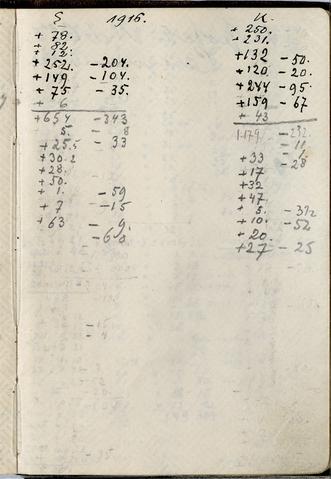 S 1916. K.
+ 78. + 250.
+ 82. + 231.
+ 12. +132 - 50.
+ 252. - 204. +120. - 20.
+ 149 - 104. +244 - 95.
+ 75 - 35. +159 - 67
+ 6 + 43
+ 654 - 343 1179. - 232.
5. - 8 - 11
+ 25.5 - 33 +33 - 28
+ 30.2 +17
+ 28. +32
+ 50. +47
+ 1. - 59 + 5. - 392
+ 7 - 15 + 10. - 52
+ 63 - 9. + 20.
- 68 +27 - 25
- 15
- 4
- 35